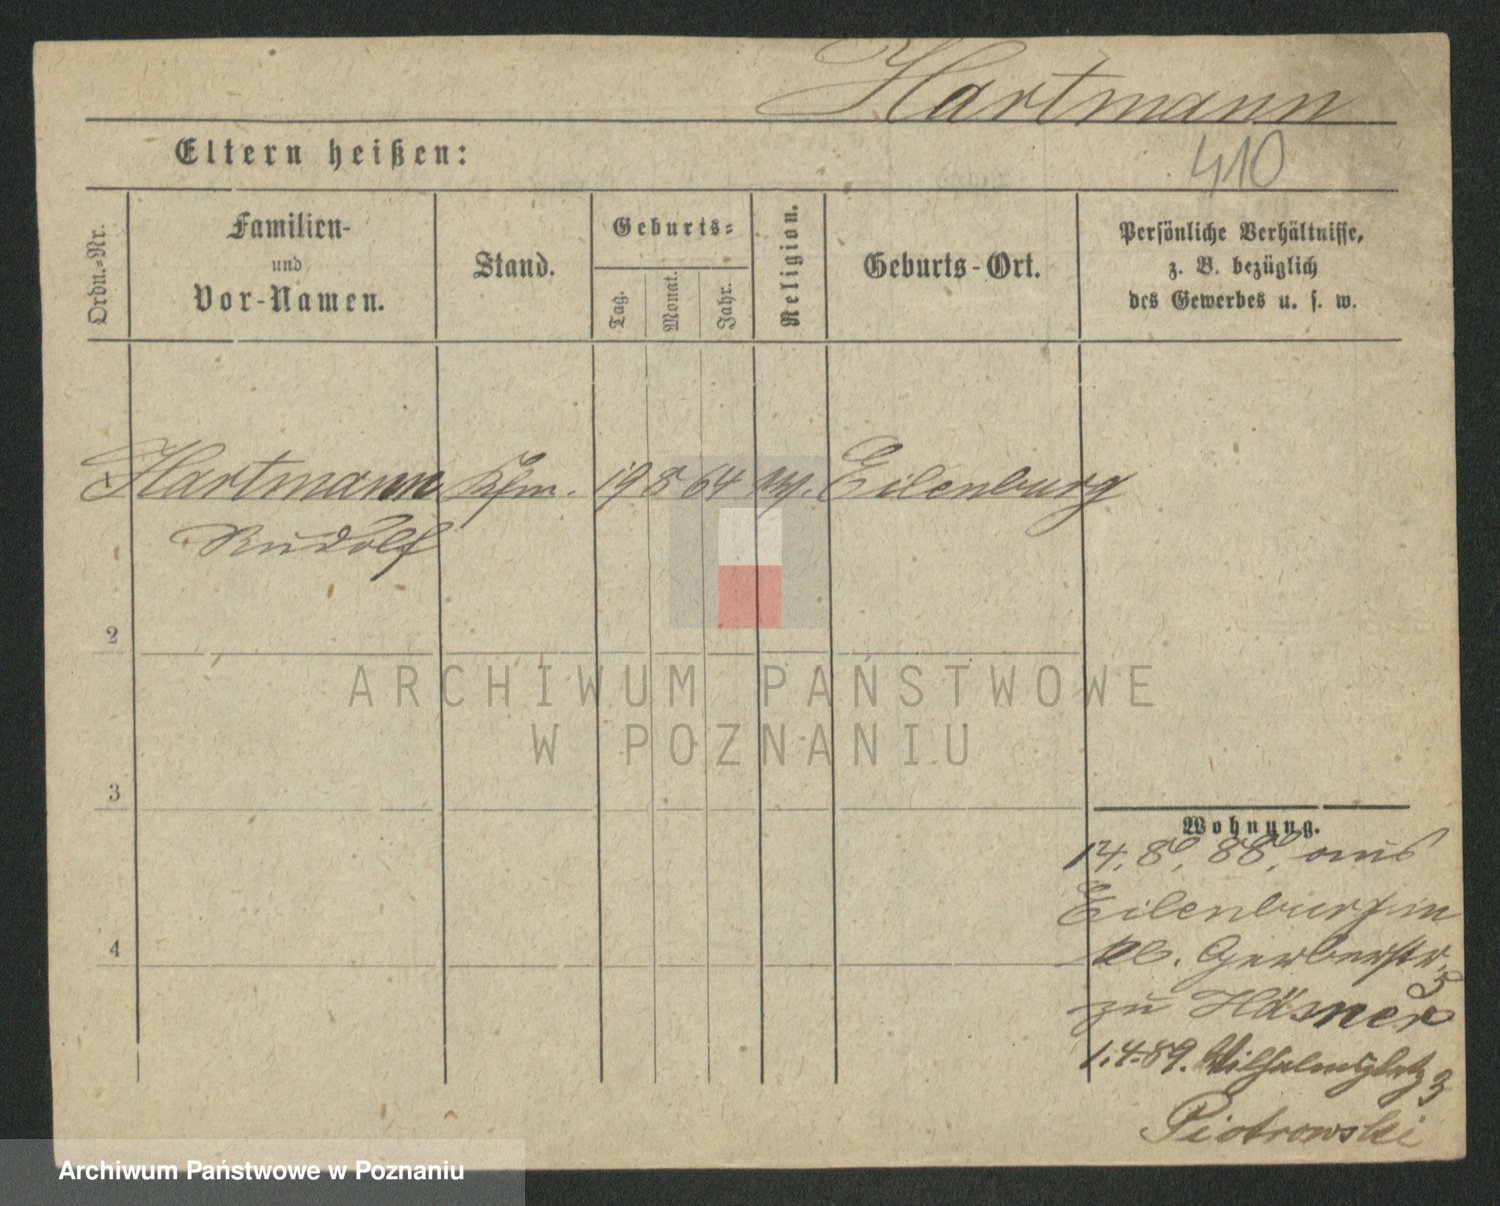 Hartmann
410
Eltern heißen:
Ordn.-Nr.
Familien-
und
Vor-Namen.
Stand.
Geburts-
Tag.
Monat.
Jahr.
Religion.
Geburts-Ort.
Persönliche Verhältnisse,
z. B. bezüglich
des Gewerbes u. s. w.
1 Hartmann Kfm. 19 8 64 Eilenburg
Rudolf
2
ARCHIWUM PAŃSTWOWE
W POZNANIU
3
Wohnung.
14. 8. 88. aus
Eilenburg in
4
Kl. Gerberstr. 3
zu Häsner
1.4.89. Wilhelmsplatz 3
Piotrowski
Archiwum Państwowe w Poznaniu